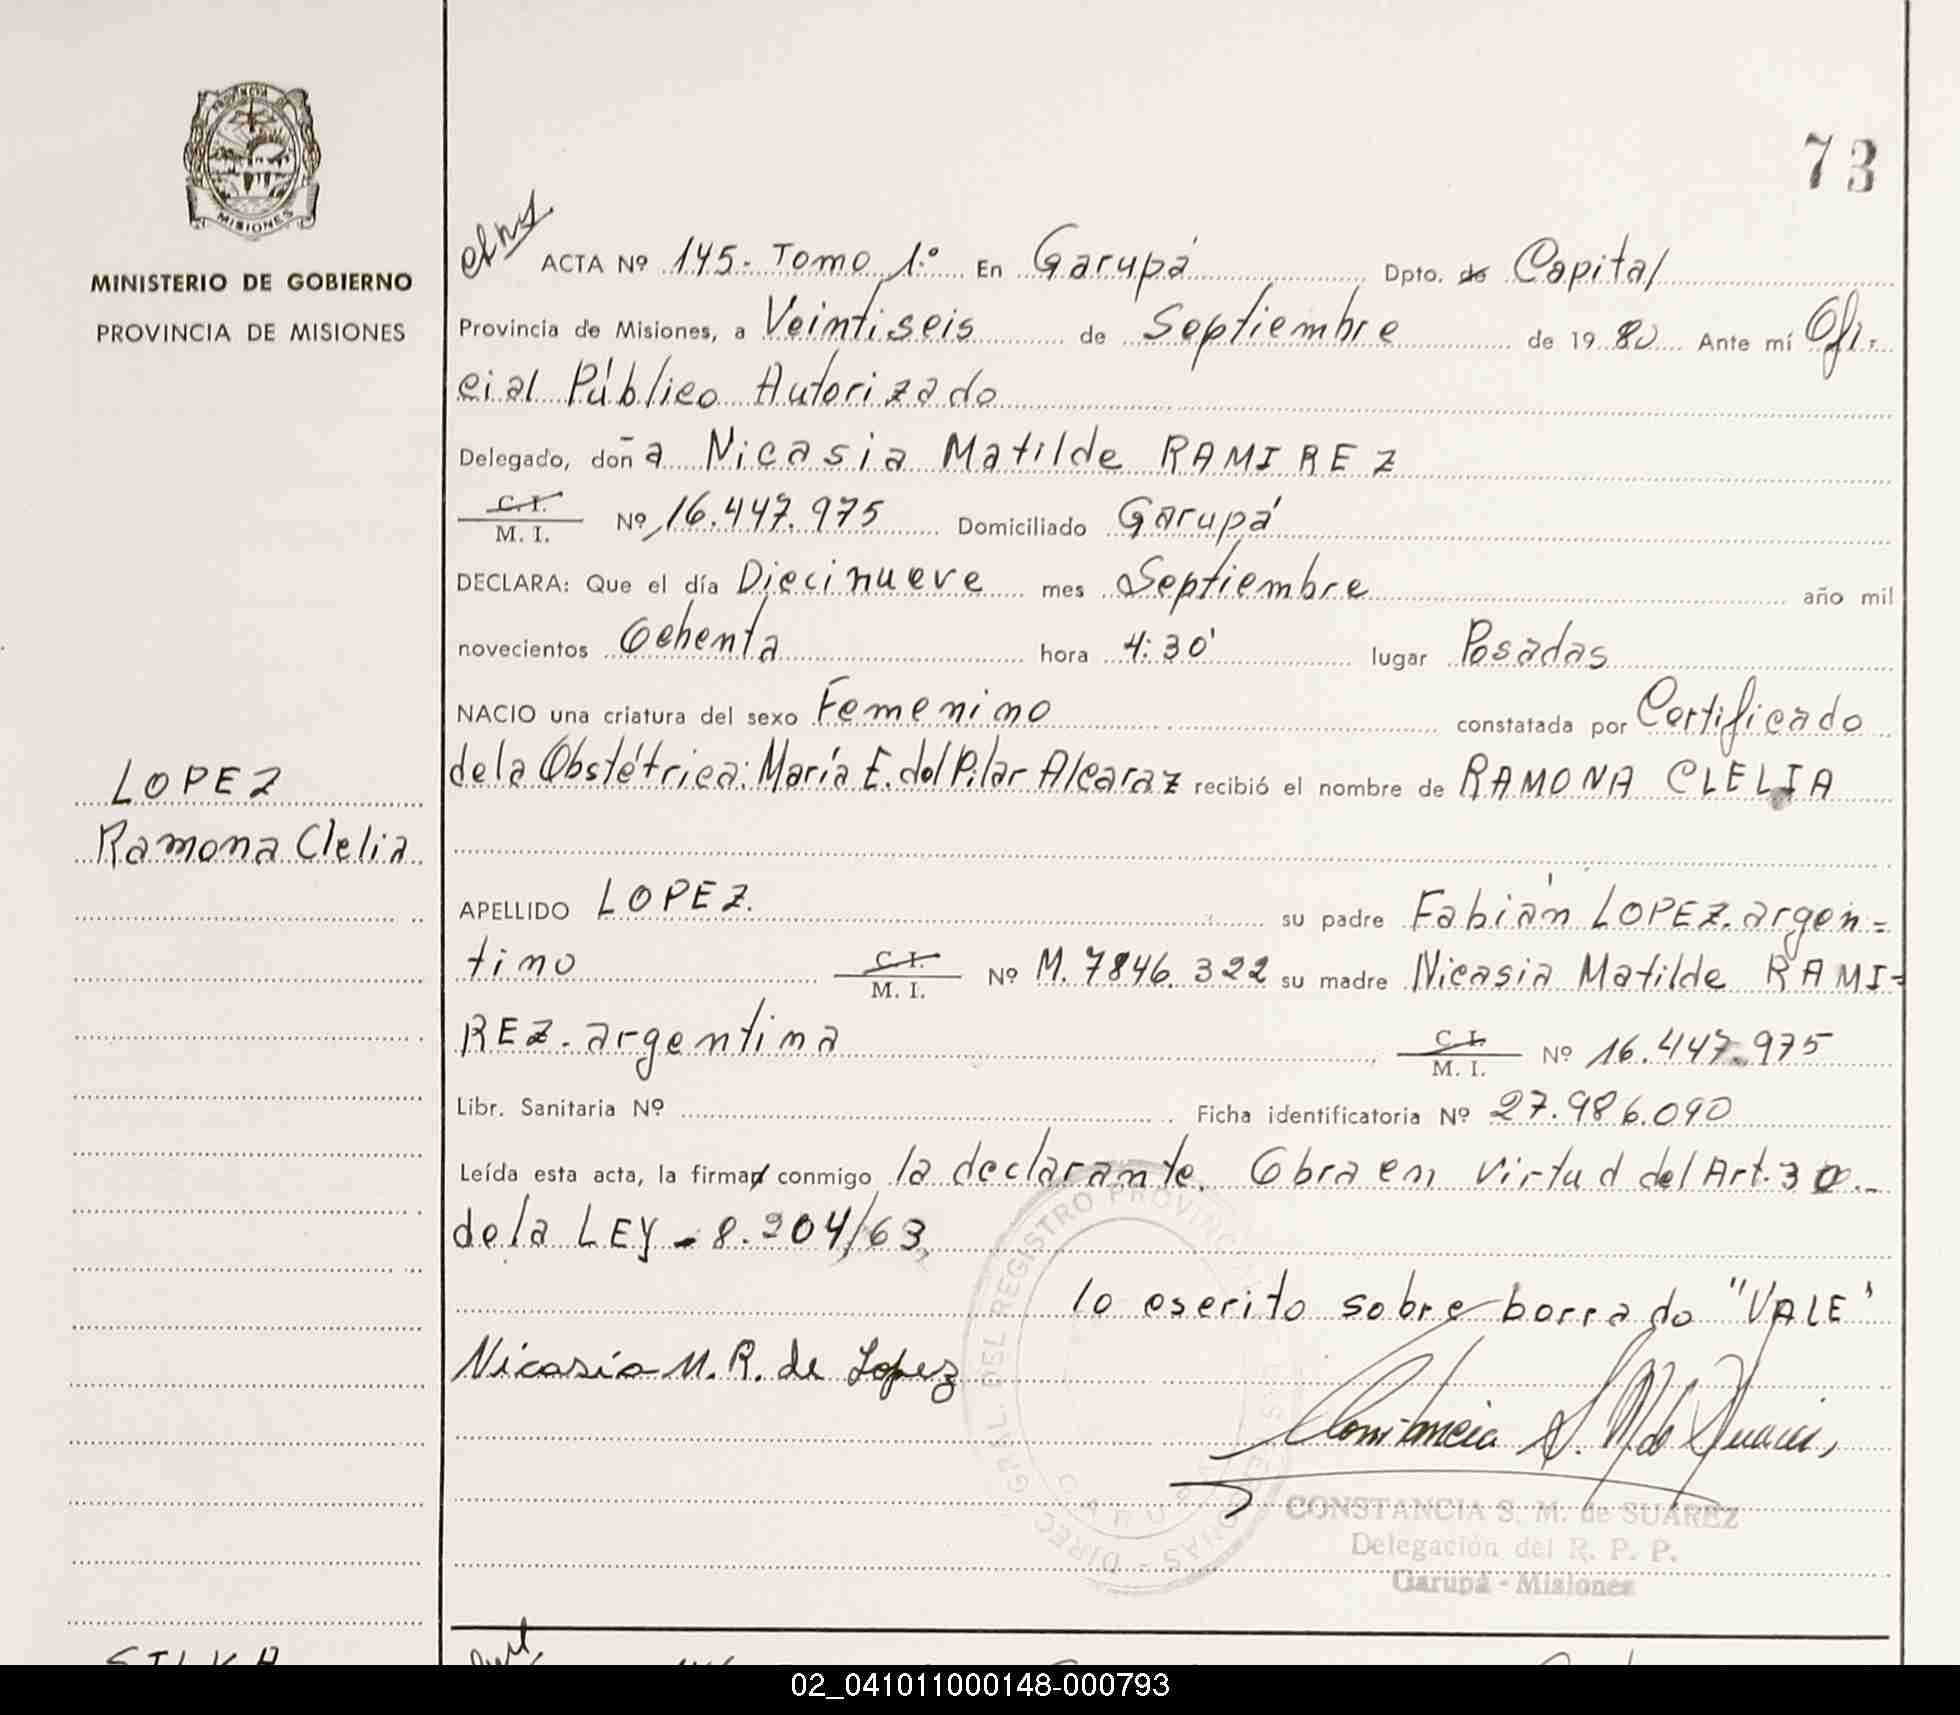 PROVINCIA DE
MISIONES
MINISTERIO DE GOBIERNO
PROVINCIA DE MISIONES
73
ACTA Nº 145.- Tomo 1.º En Garupá Dpto. de Capital
Provincia de Misiones, a Veintiseis de Septiembre de 1980 Ante mí Ofi-
cial Público Autorizado
Delegado, doña Nicasia Matilde RAMIREZ
C. I.
M. I. Nº 16.447.975 Domiciliado Garupá
DECLARA: Que el día Diecinueve mes Septiembre año mil
novecientos Ochenta hora 4:30' lugar Posadas
NACIO una criatura del sexo Femenino constatada por Certificado
de la Obstétrica: María E. del Pilar Alcaraz recibió el nombre de RAMONA CLELIA
LOPEZ
Ramona Clelia
APELLIDO LOPEZ. su padre Fabián LOPEZ. argen=
tino C. I.
M. I. Nº M. 7846.322 su madre Nicasia Matilde RAMI=
REZ. argentina C. I.
M. I. Nº 16.447.975
Libr. Sanitaria Nº Ficha identificatoria Nº 27.986.090
Leída esta acta, la firman conmigo la declarante. Obra en virtud del Art. 30.-
de la LEY - 8.204/63,
lo escrito sobre borrado "VALE"
Nicasia M. R. de Lopez
Constancia S. M. de Suarez
DIREC. GRAL. DEL REGISTRO PROVINCIAL
GARUPA
CONSTANCIA S. M. de SUAREZ
Delegación del R. P. P.
Garupá - Misiones
SILVA
02_041011000148-000793